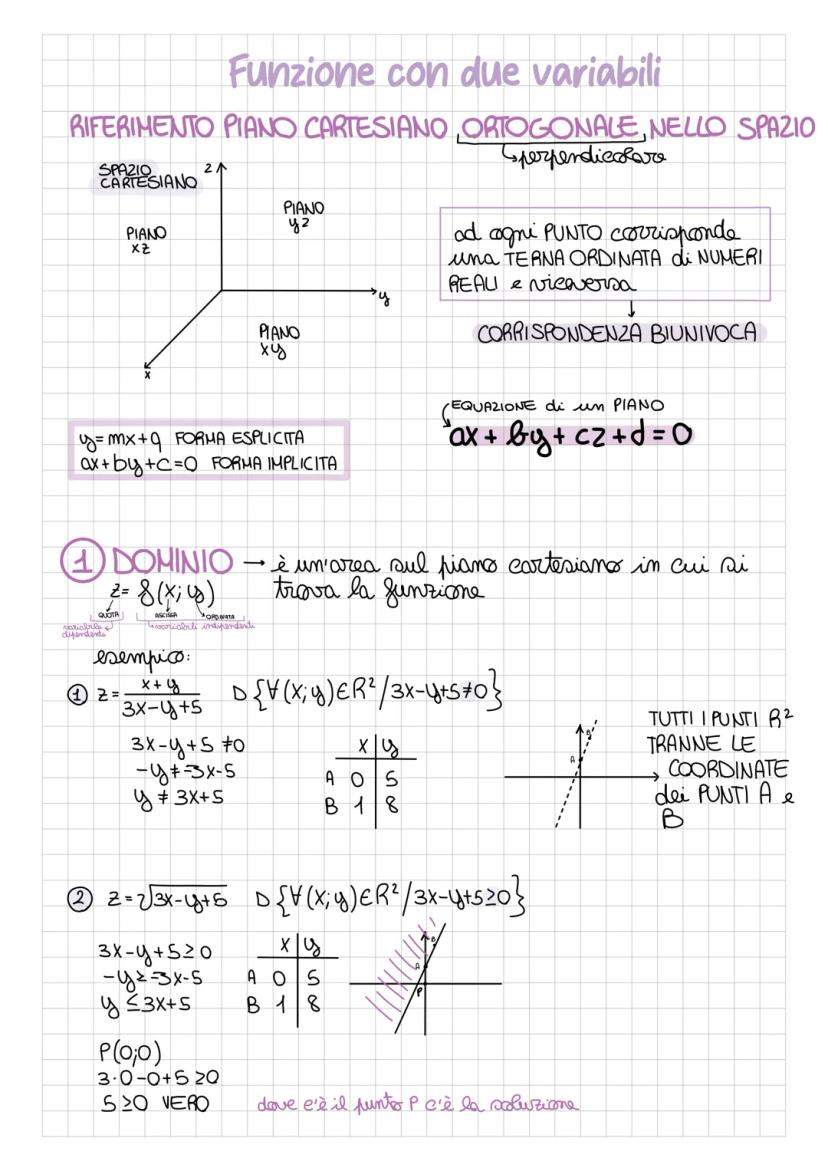 Funzione con due variabili
RIFERIMENTO PIANO CARTESIANO ORTOGONALE NELLO SPAZIO
↳perpendicolare
SPAZIO
CARTESIANO
z
PIANO
yz
PIANO
xz
y
PIANO
xy
x
ad ogni PUNTO corrisponde
una TERNA ORDINATA di NUMERI
REALI e viceversa
↓
CORRISPONDENZA BIUNIVOCA
EQUAZIONE di un PIANO
ax + by + cz + d = 0
y=mx+q FORMA ESPLICITA
ax+by+c=0 FORMA IMPLICITA
① DOMINIO → è un'area sul piano cartesiano in cui si
trova la funzione
z= f(x; y)
QUOTA ASCISSA ORDINATA
variabile dipendente
↳variabili indipendenti
esempio:
① z= x+y / 3x-y+5 D {∀(x;y)∈R²/3x-y+5≠0}
3x-y+5≠0
-y≠-3x-5
y≠3x+5
x | y
A 0 | 5
B 1 | 8
A
B
TUTTI I PUNTI R²
TRANNE LE
COORDINATE
dei PUNTI A e
B
② z=2√3x-y+5 D {∀(x;y)∈R²/3x-y+5≥0}
3x-y+5≥0
-y≥-3x-5
y≤3x+5
x | y
A 0 | 5
B 1 | 8
B
A
P
P(0;0)
3·0-0+5≥0
5≥0 VERO
dove c'è il punto P c'è la soluzione